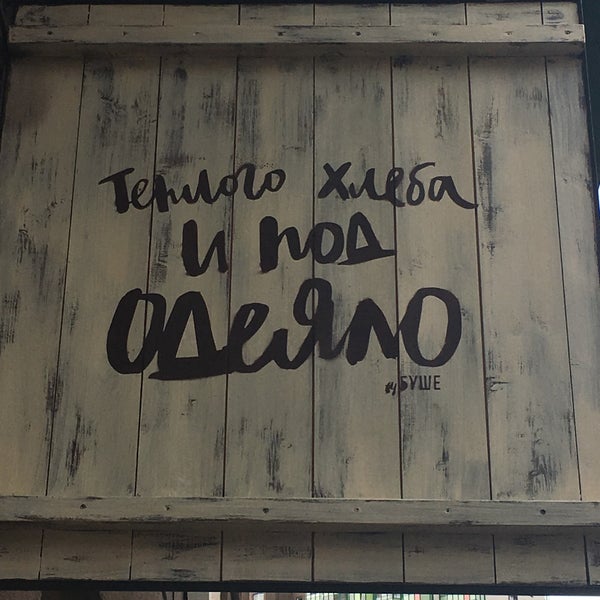 Теплого хлеба
и под
Одеяло
by БУШЕ